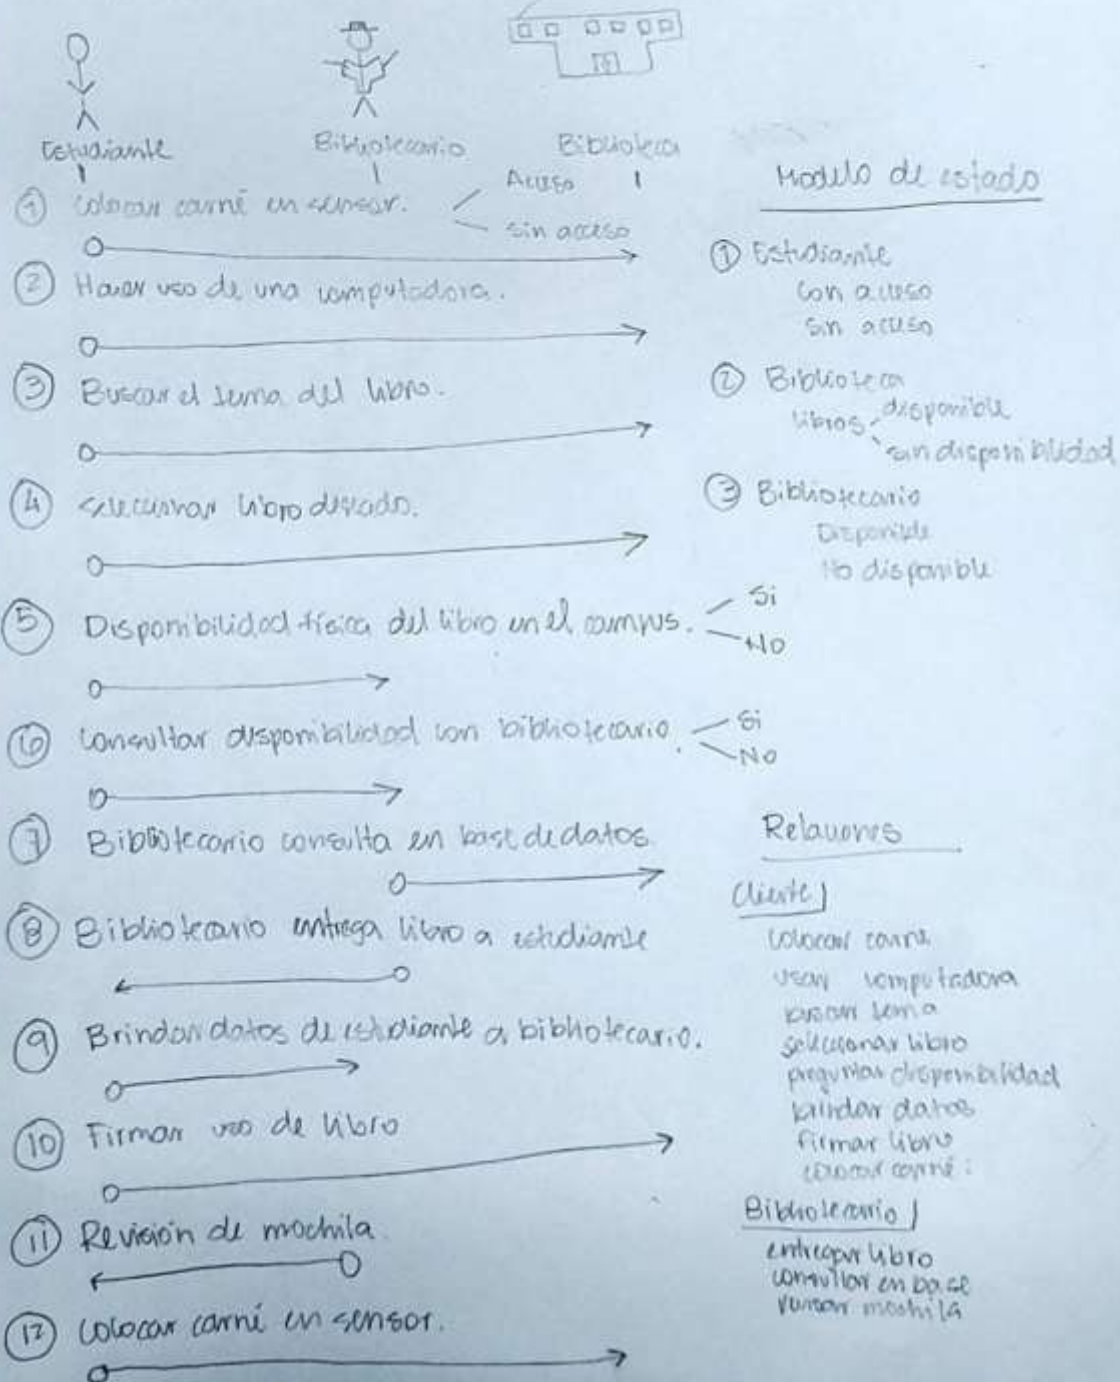 Estudiante
Bibliotecario
Biblioteca
① Colocar carné en sensor.
Acceso
sin acceso
② Hacer uso de una computadora.
③ Buscar el tema del libro.
④ Seleccionar libro deseado.
⑤ Disponibilidad física del libro en el campus.
Si
No
⑥ Consultar disponibilidad con bibliotecario.
Si
No
⑦ Bibliotecario consulta en base de datos
⑧ Bibliotecario entrega libro a estudiante
⑨ Brindar datos de estudiante a bibliotecario.
⑩ Firmar uso de libro
⑪ Revisión de mochila
⑫ Colocar carné en sensor.
Modelo de estado
① Estudiante
Con acceso
Sin acceso
② Biblioteca
libros
disponible
sin disponibilidad
③ Bibliotecario
Disponible
No disponible
Relaciones
Cliente
colocar carné
usar computadora
buscar tema
seleccionar libro
preguntar disponibilidad
brindar datos
firmar libro
colocar carné
Bibliotecario
entregar libro
consultar en base
revisar mochila